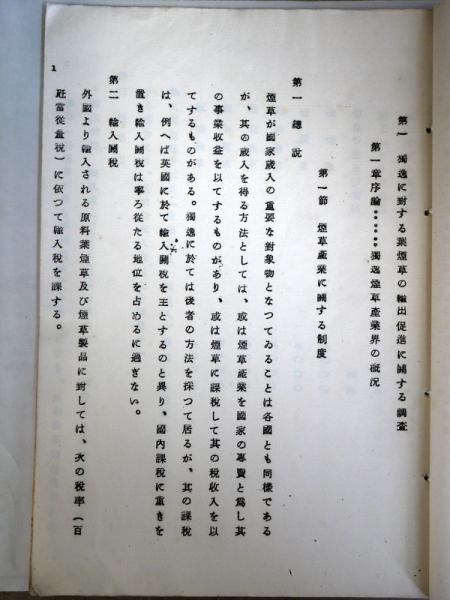 第一 獨逸に対する葉煙草の輸出促進に關する調査
第一章序論‥‥‥獨逸煙草產業界の概況
第一節 煙草產業に關する制度
第一 總說
煙草が國家歲入の重要な對象物となつてゐることは各國とも同樣である
が、其の歲入を得る方法としては、或は煙草產業を國家の專賣と爲し其
の事業收益を以てするものがあり、或は煙草に課稅して其の稅收入を以
てするものがある。獨逸に於ては後者の方法を採つて居るが、其の課稅
は、例へば英國に於て輸入關稅を主とするのと異り、國內課稅に重きを
置き輸入關稅は寧ろ從たる地位を占めるに過ぎない。
第二 輸入關稅
外國より輸入される原料葉煙草及び煙草製品に對しては、次の稅率(百
瓩當從量稅)に依つて輸入稅を課する。
1